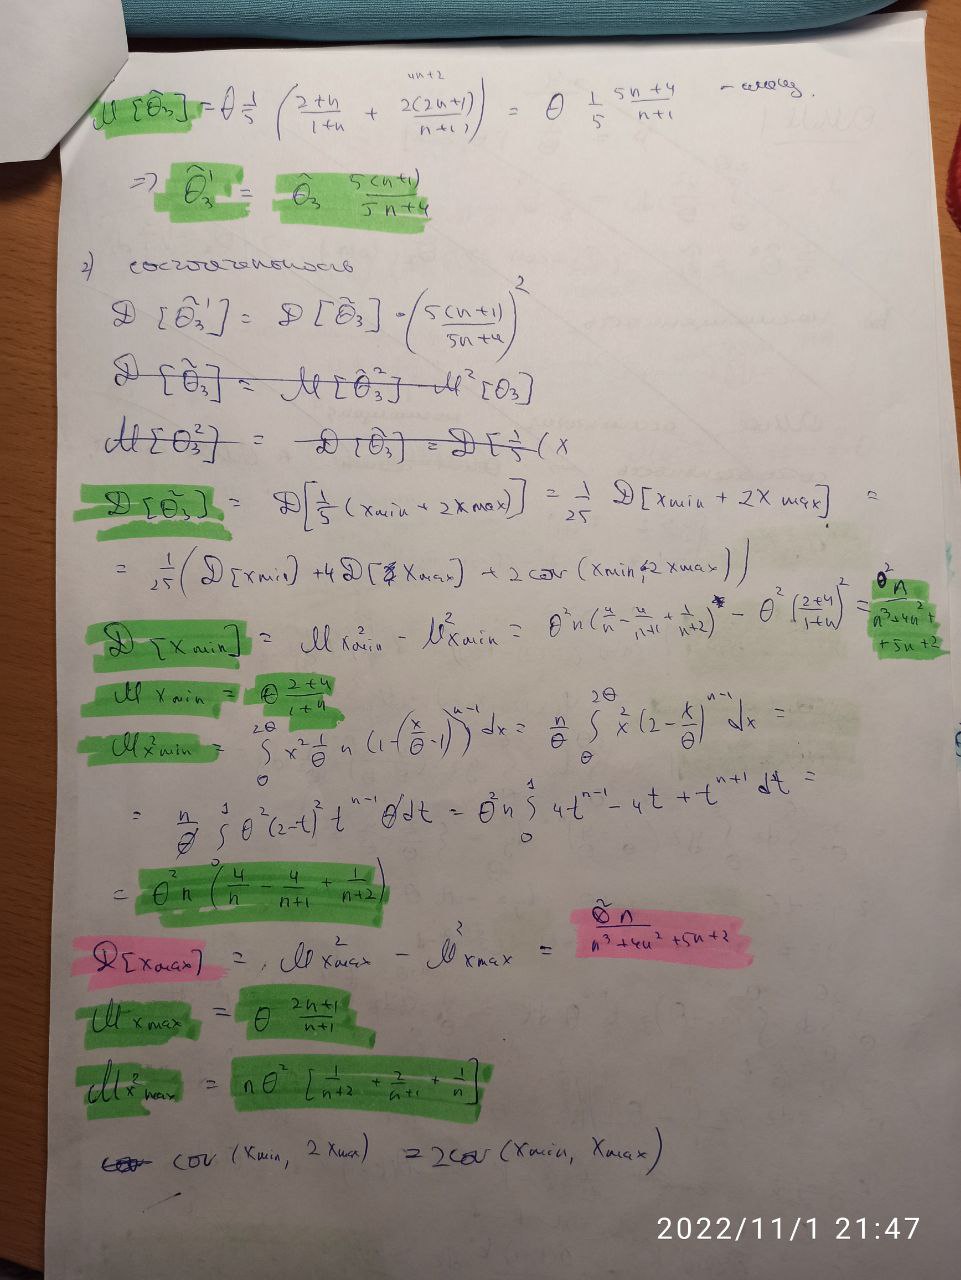 M[θ̃₃] = θ 1/5 ( (2+n)/(1+n) + 2(2n+1)/(n+1) ) = θ 1/5 (5n+4)/(n+1) -
4n+2
=> θ̃₃' = θ̃₃ 5(n+1)/(5n+4)
2) состоятельность
D[θ̃₃'] = D[θ̃₃] · (5(n+1)/(5n+4))²
D[θ̃₃] = M[θ̃₃²] - M²[θ₃]
M[θ₃²] = D[θ̃₃] = D[1/5 (x
D[θ̃₃] = D[1/5 (xmin + 2xmax)] = 1/25 D[xmin + 2xmax] =
= 1/25 ( D[xmin] + 4D[xmax] + 2cov(xmin, 2xmax) )
D[xmin] = Mx²min - M²xmin = θ²n(4/n - 4/(n+1) + 1/(n+2)) - θ²((2+n)/(1+n))² = θ²n/(n³+4n²+5n+2)
Mxmin = θ (2+n)/(1+n)
Mx²min = ∫₀^2θ x² 1/θ n (1-(x/θ-1))^(n-1) dx = n/θ ∫_θ^2θ x² (2-x/θ)^(n-1) dx =
= n/θ ∫₀¹ θ²(2-t)² t^(n-1) θdt = θ²n ∫₀¹ 4t^(n-1) - 4t + t^(n+1) dt =
= θ²n (4/n - 4/(n+1) + 1/(n+2))
D[xmax] = Mx²max - M²xmax = θ²n/(n³+4n²+5n+2)
Mxmax = θ (2n+1)/(n+1)
Mx²max = nθ² [1/(n+2) + 2/(n+1) + 1/n]
cov cov(xmin, 2xmax) = 2cov(xmin, xmax)
2022/11/1 21:47